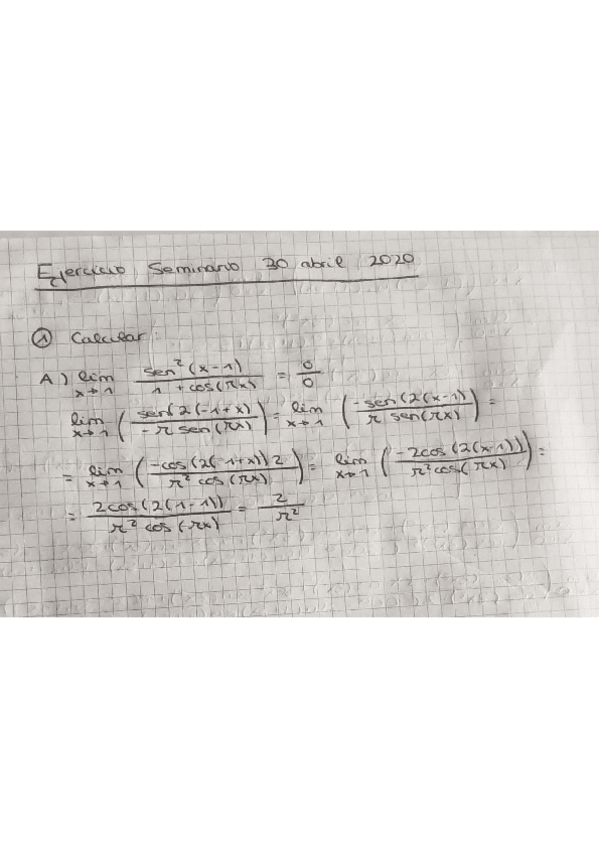 Ejercicio Seminario 30 abril 2020
① Calcular:
A) lim x→1 sen²(x-1) / 1+cos(πx) = 0/0
lim x→1 (sen(2(-1+x)) / -π sen(πx)) = lim x→1 (-sen(2(x-1)) / π sen(πx)) =
= lim x→1 (-cos(2(-1+x))2 / π² cos(πx)) = lim x→1 (-2cos(2(x-1)) / π² cos(πx)) =
= 2cos(2(1-1)) / π² cos(πx) = 2 / π²